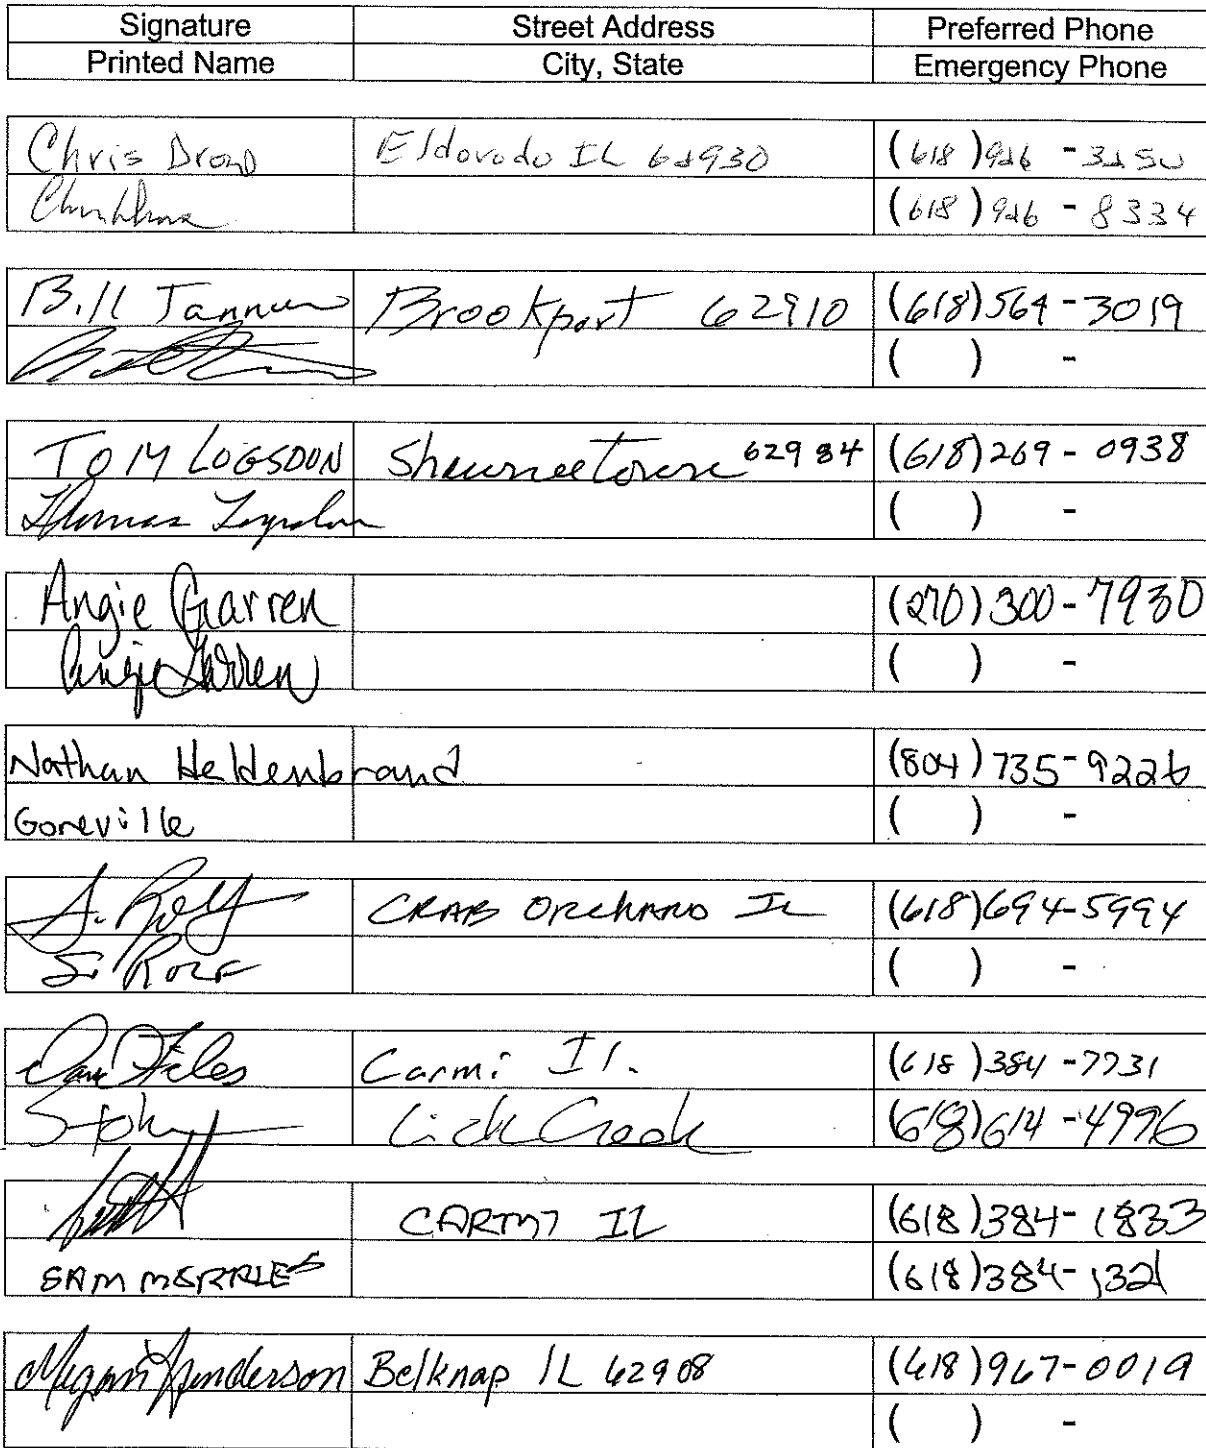 Signature Street Address Preferred Phone
Printed Name City, State Emergency Phone
Chris Eldorado IL 62930 (618) 926 - 3250
(618) 926 - 8334
Bill Tanner Brookport 62910 (618) 564 - 3019
( ) -
TOM LOGSDON Shawneetown 62984 (618) 269 - 0938
Thomas Logsdon ( ) -
Angie Garren (270) 300 - 7930
Angie Garren ( ) -
Nathan Heldenbrand (804) 735 - 9226
Goreville ( ) -
S. Rolf CRAB ORCHARD IL (618) 694 - 5994
S. ROLF ( ) -
Files Carmi Il. (618) 384 - 7731
Lick Creek (618) 614 - 4996
CARMI IL (618) 384 - 1833
SAM (618) 384 - 1321
Megan Henderson Belknap IL 62908 (618) 967 - 0019
( ) -